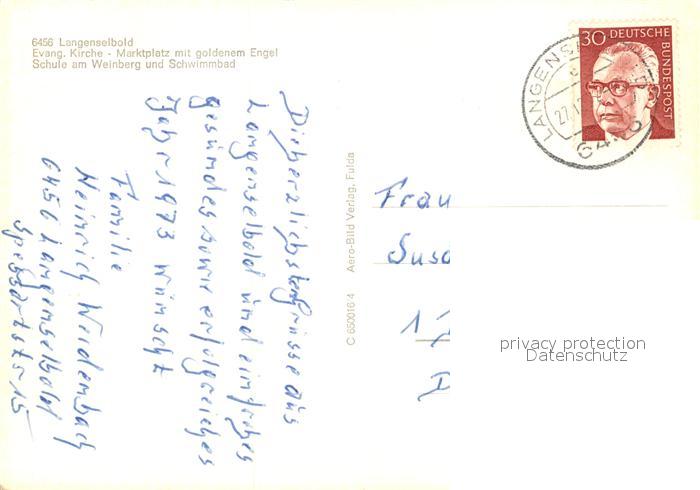 6456 Langenselbold
Evang. Kirche - Marktplatz mit goldenem Engel
Schule am Weinberg und Schwimmbad
30
DEUTSCHE
BUNDESPOST
LANGENS
27.12
Die herzlichsten Grüsse aus
Langenselbold und ein frohes
gesundes sowie erfolgreiches
Jahr 1973 wünscht
Familie
Heinrich Weidenbach
6456 Langenselbold
Spessartstr 15
C 650016 4 Aero-Bild Verlag, Fulda
Frau
Susa
1
privacy protection
Datenschutz